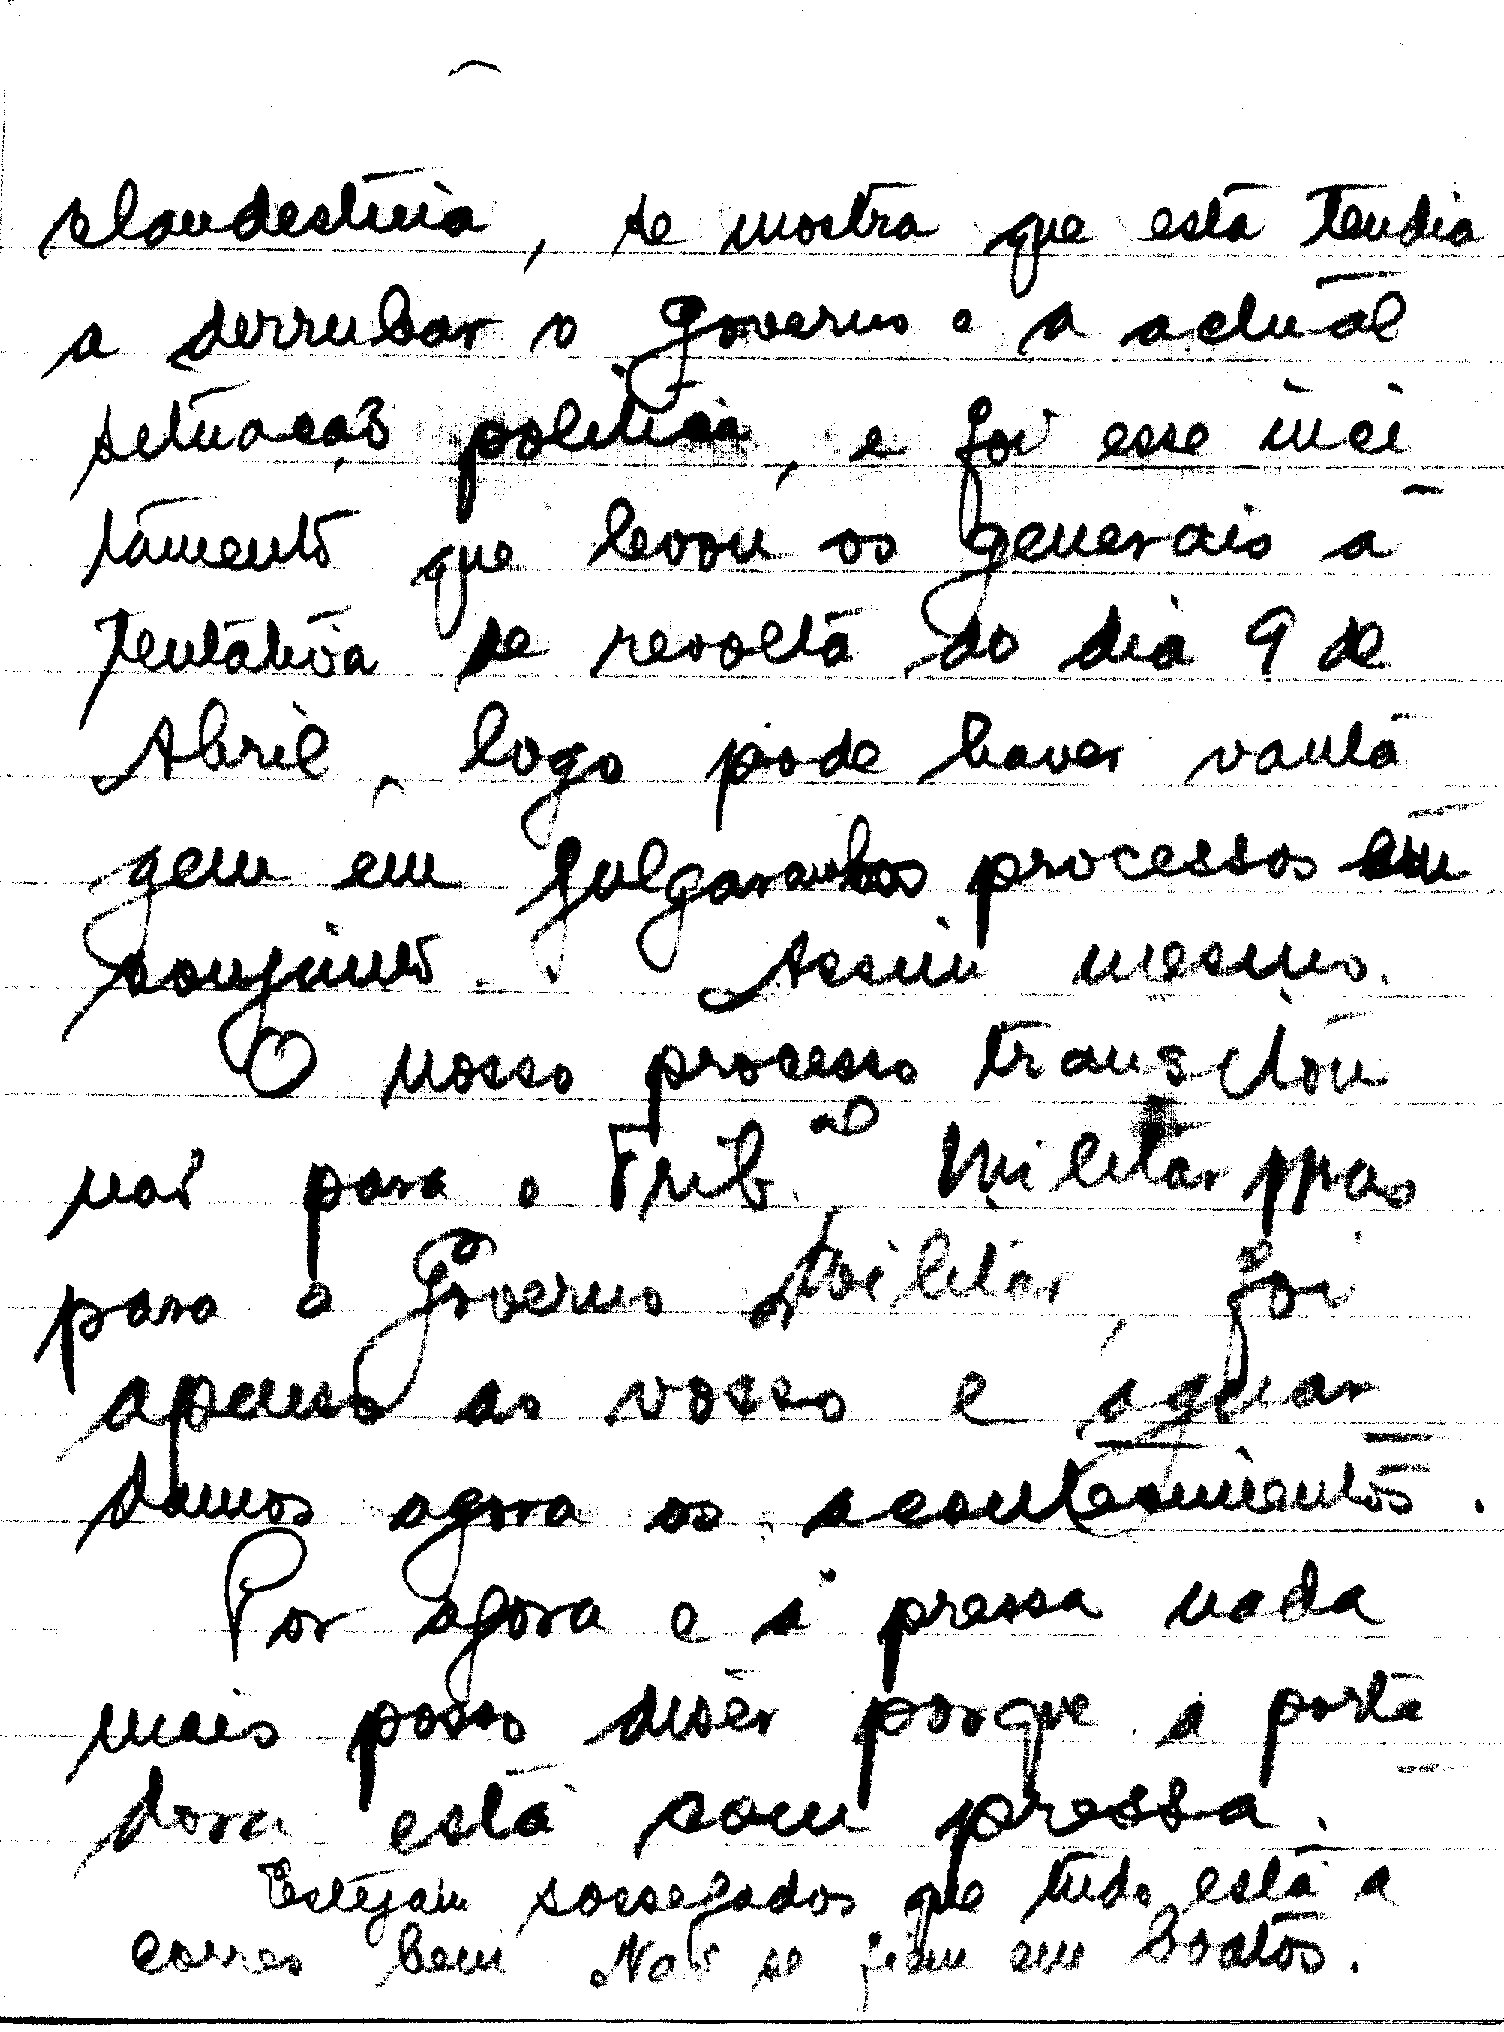 clandestina, se mostra que esta tendia
a derrubar o governo e a actual
situação politica, e foi esse inci
tamento que levou os generais á
tentativa de revolta do dia 9 de
Abril, logo pode haver vanta
gem em julgar ambos processos em
conjunto. Assim mesmo.
O nosso processo transitou
não para o Trib.al Militar mas
para o Governo Militar, foi
apenso ao vosso e aguar
damos agora os acontecimentos.
Por agora e á pressa nada
mais posso diser porque a porta
dora está com pressa.
Estejam sossegados que tudo está a
correr bem Não se fiem em boatos.